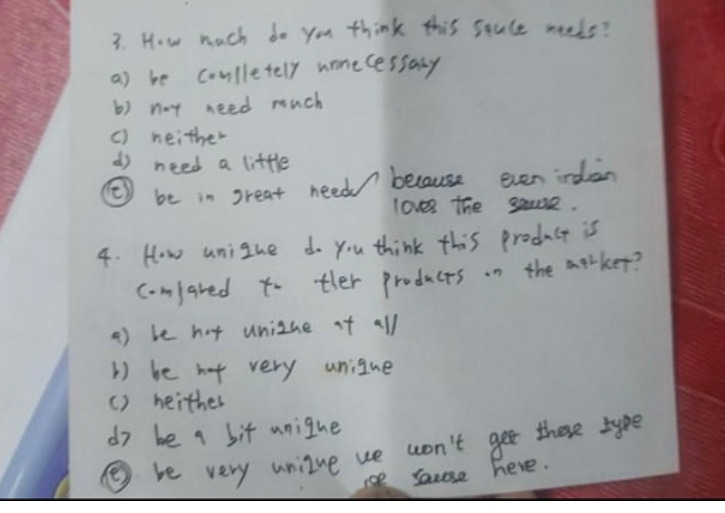 3. How much do you think this sauce needs?
a) be completely unnecessary
b) not need much
c) neither
d) need a little
(e) be in great need because even indian
loves the sause.
4. How unique do you think this product is
compared to other products on the market?
a) be not unique at all
b) be not very unique
c) neither
d) be a bit unique
(e) be very unique we won't get these type
of sause here.